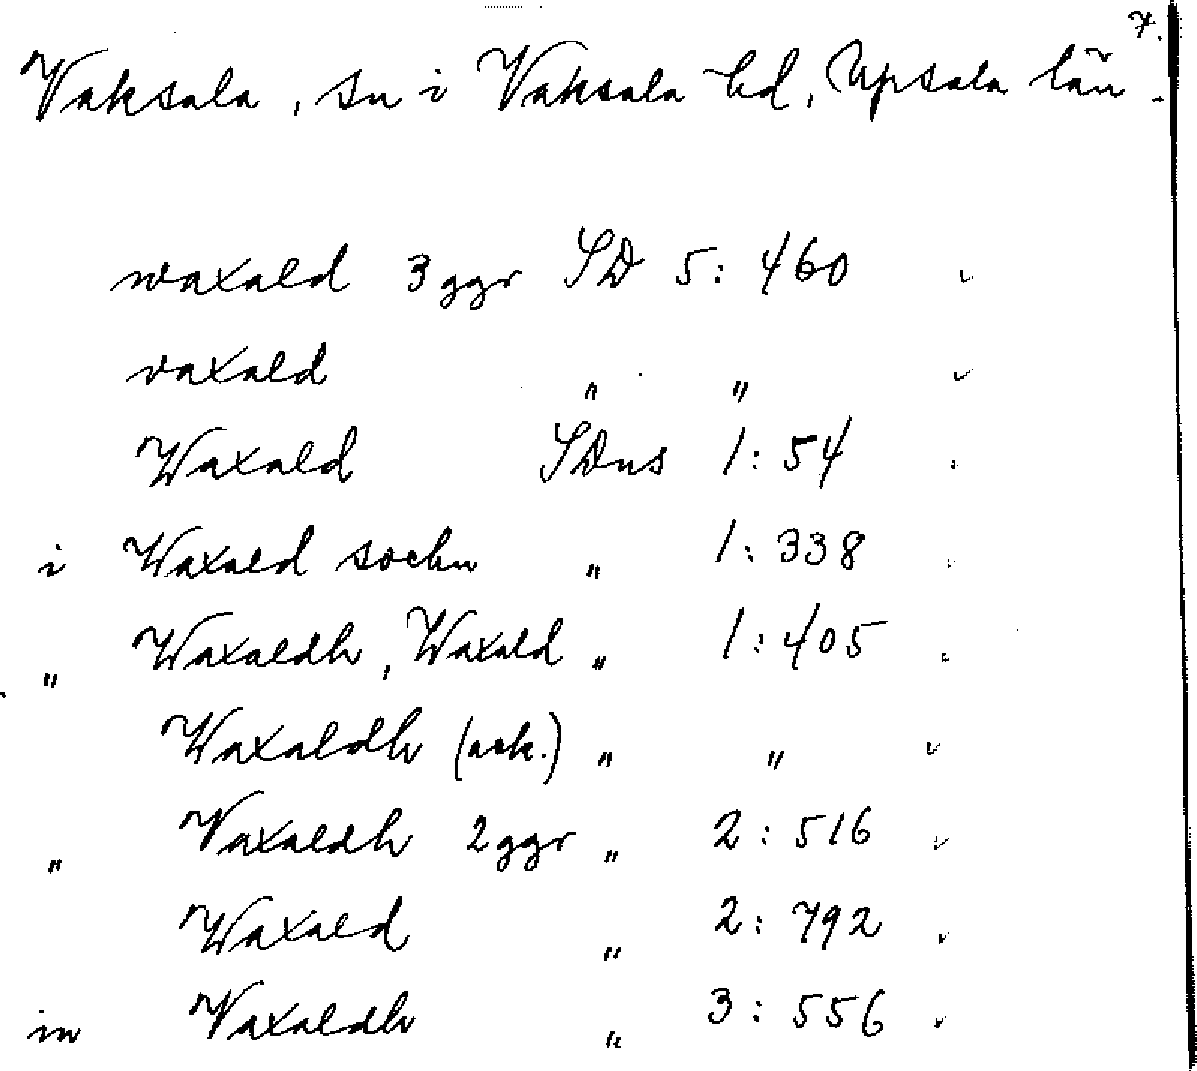 7.
Vaksala, sn i Vaksala hd, Upsala län.
waxald 3 ggr SD 5: 460
vaxald " "
Waxald SDns 1: 54
i Waxald sockn " 1: 338
" Waxaldh, Waxald " 1: 405
Waxaldh (ack.) " "
" Vaxaldh 2 ggr " 2: 516
Waxald " 2: 792
in Vaxaldh " 3: 556